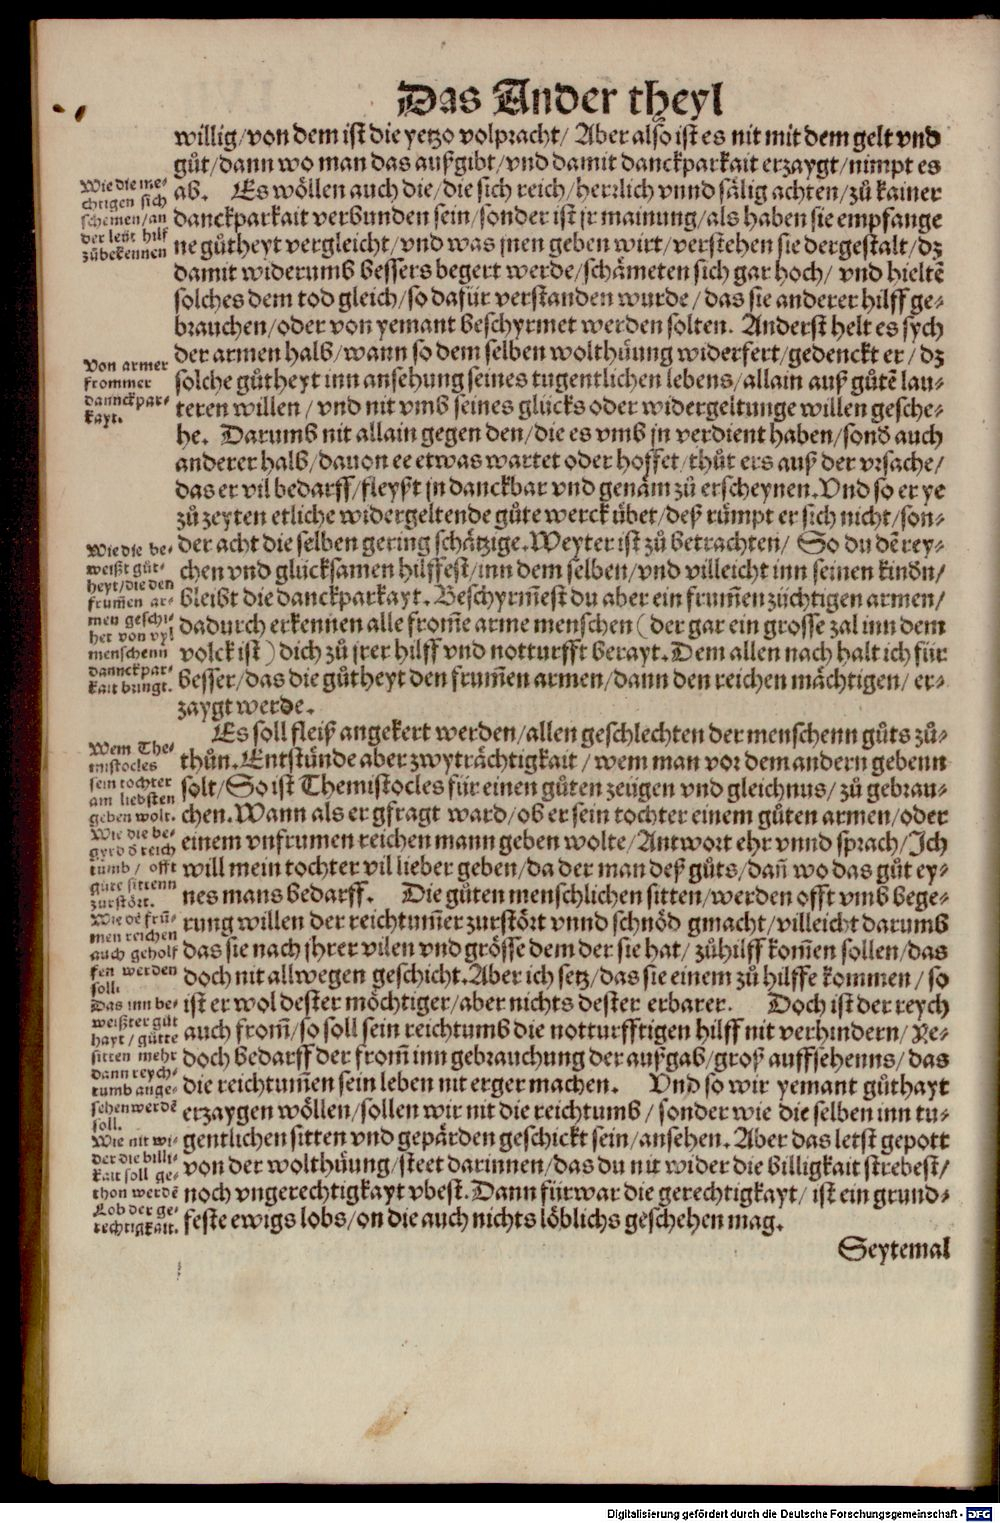 Das Ander theyl
willig/von dem ist die yetzo volpracht/ Aber also ist es nit mit dem gelt vnd
gůt/dann wo man das außgibt/vnd damit danckparkait erzaygt/nimpt es
ab. Es wöllen auch die/die sich reich/herrlich vnnd sälig achten/zů kainer
danckparkait verbunden sein/sonder ist jr mainung/als haben sie empfange
ne gůtheyt vergleicht/vnd was jnen geben wirt/verstehen sie dergestalt/dz
damit widerumb bessers begert werde/schämeten sich gar hoch/ vnd hieltē
solches dem tod gleich/so dafür verstanden wurde/das sie anderer hilff ge-
brauchen/oder von yemant beschyrmet werden solten. Anderst helt es sych
der armen halb/wann so dem selben wolthüung widerfert/gedenckt er/dz
solche gůtheyt inn ansehung seines tugentlichen lebens/allain auß gůtē lau-
teren willen/vnd nit vmb seines glücks oder widergeltunge willen gesche-
he. Darumb nit allain gegen den/die es vmb jn verdient haben/sond auch
anderer halb/dauon ee etwas wartet oder hoffet/thůt ers auß der vrsache/
das er vil bedarff/fleyßt jn danckbar vnd genäm zů erscheynen. Vnd so er ye
zů zeyten etliche widergeltende gůte werck übet/deß rümpt er sich nicht/son-
der acht die selben gering schätzige. Weyter ist zů betrachten/ So du dē rey-
chen vnd glücksamen hilffest/inn dem selben/vnd villeicht inn seinen kindn/
bleibt die danckparkayt. Beschyrm̄est du aber ein frum̄en züchtigen armen/
dadurch erkennen alle from̄e arme menschen (der gar ein grosse zal inn dem
volck ist) dich zů jrer hilff vnd notturfft berayt. Dem allen nach halt ich für
besser/das die gůtheyt den frum̄en armen/dann den reichen mächtigen/ er-
zaygt werde.
Es soll fleiß angekert werden/allen geschlechten der menschenn gůts zů-
thůn. Entstünde aber zwyträchtigkait/wem man vor dem andern gebenn
solt/So ist Themistocles für einen gůten zeügen vnd gleichnus/zů gebrau-
chen. Wann als er gfragt ward/ob er sein tochter einem gůten armen/oder
einem vnfrumen reichen mann geben wolte/Antwort ehr vnnd sprach/Ich
will mein tochter vil lieber geben/da der man deß gůts/dan̄ wo das gůt ey-
nes mans bedarff. Die gůten menschlichen sitten/werden offt vmb bege-
rung willen der reichtum̄er zurstört vnnd schnöd gmacht/villeicht darumb
das sie nach jhrer vilen vnd grösse dem der sie hat/ zůhilff kom̄en sollen/das
doch nit allwegen geschicht. Aber ich setz/das sie einem zů hilffe kommen/so
ist er wol dester möchtiger/aber nichts dester erbarer. Doch ist der reych
auch from̄/so soll sein reichtumb die notturfftigen hilff nit verhindern/Ye-
doch bedarff der from̄ inn gebrauchung der außgab/groß auffsehenns/das
die reichtum̄en sein leben nit erger machen. Vnd so wir yemant gůthayt
erzaygen wöllen/sollen wir nit die reichtumb/sonder wie die selben inn tu-
gentlichen sitten vnd gepärden geschickt sein/ansehen. Aber das letst gepott
von der wolthüung/steet darinnen/das du nit wider die billigkait strebest/
noch vngerechtigkayt vbest. Dann fürwar die gerechtigkayt/ ist ein grund-
feste ewigs lobs/on die auch nichts löblichs geschehen mag.
Seytemal
Wie die me-
chtigen sich
schemen/an
der leüt hilf
zůbekennen
Von armer
frommer
dannckpar-
kayt.
Wie die be-
weißt gůt-
heyt/die den
frum̄en ar-
men geschi-
het von vyl
menschenn
dannckpar-
kait bringt.
Wem The-
mistocles
sein tochter
am liebsten
geben wolt.
Wie die be-
gyrd d reich
tumb/ offt
gůte sittenn
zurstört.
Wie dē frū-
men reichen
auch geholf
fen werden
soll.
Das inn be-
weißter gůt
hayt/gůtte
sitten mehr
dann reych-
tumb ange-
sehen werdē
soll.
Wie nit wi-
der die billi-
kait soll ge-
thon werdē
Lob der ge-
rechtigkait.
Digitalisierung gefördert durch die Deutsche Forschungsgemeinschaft - DFG